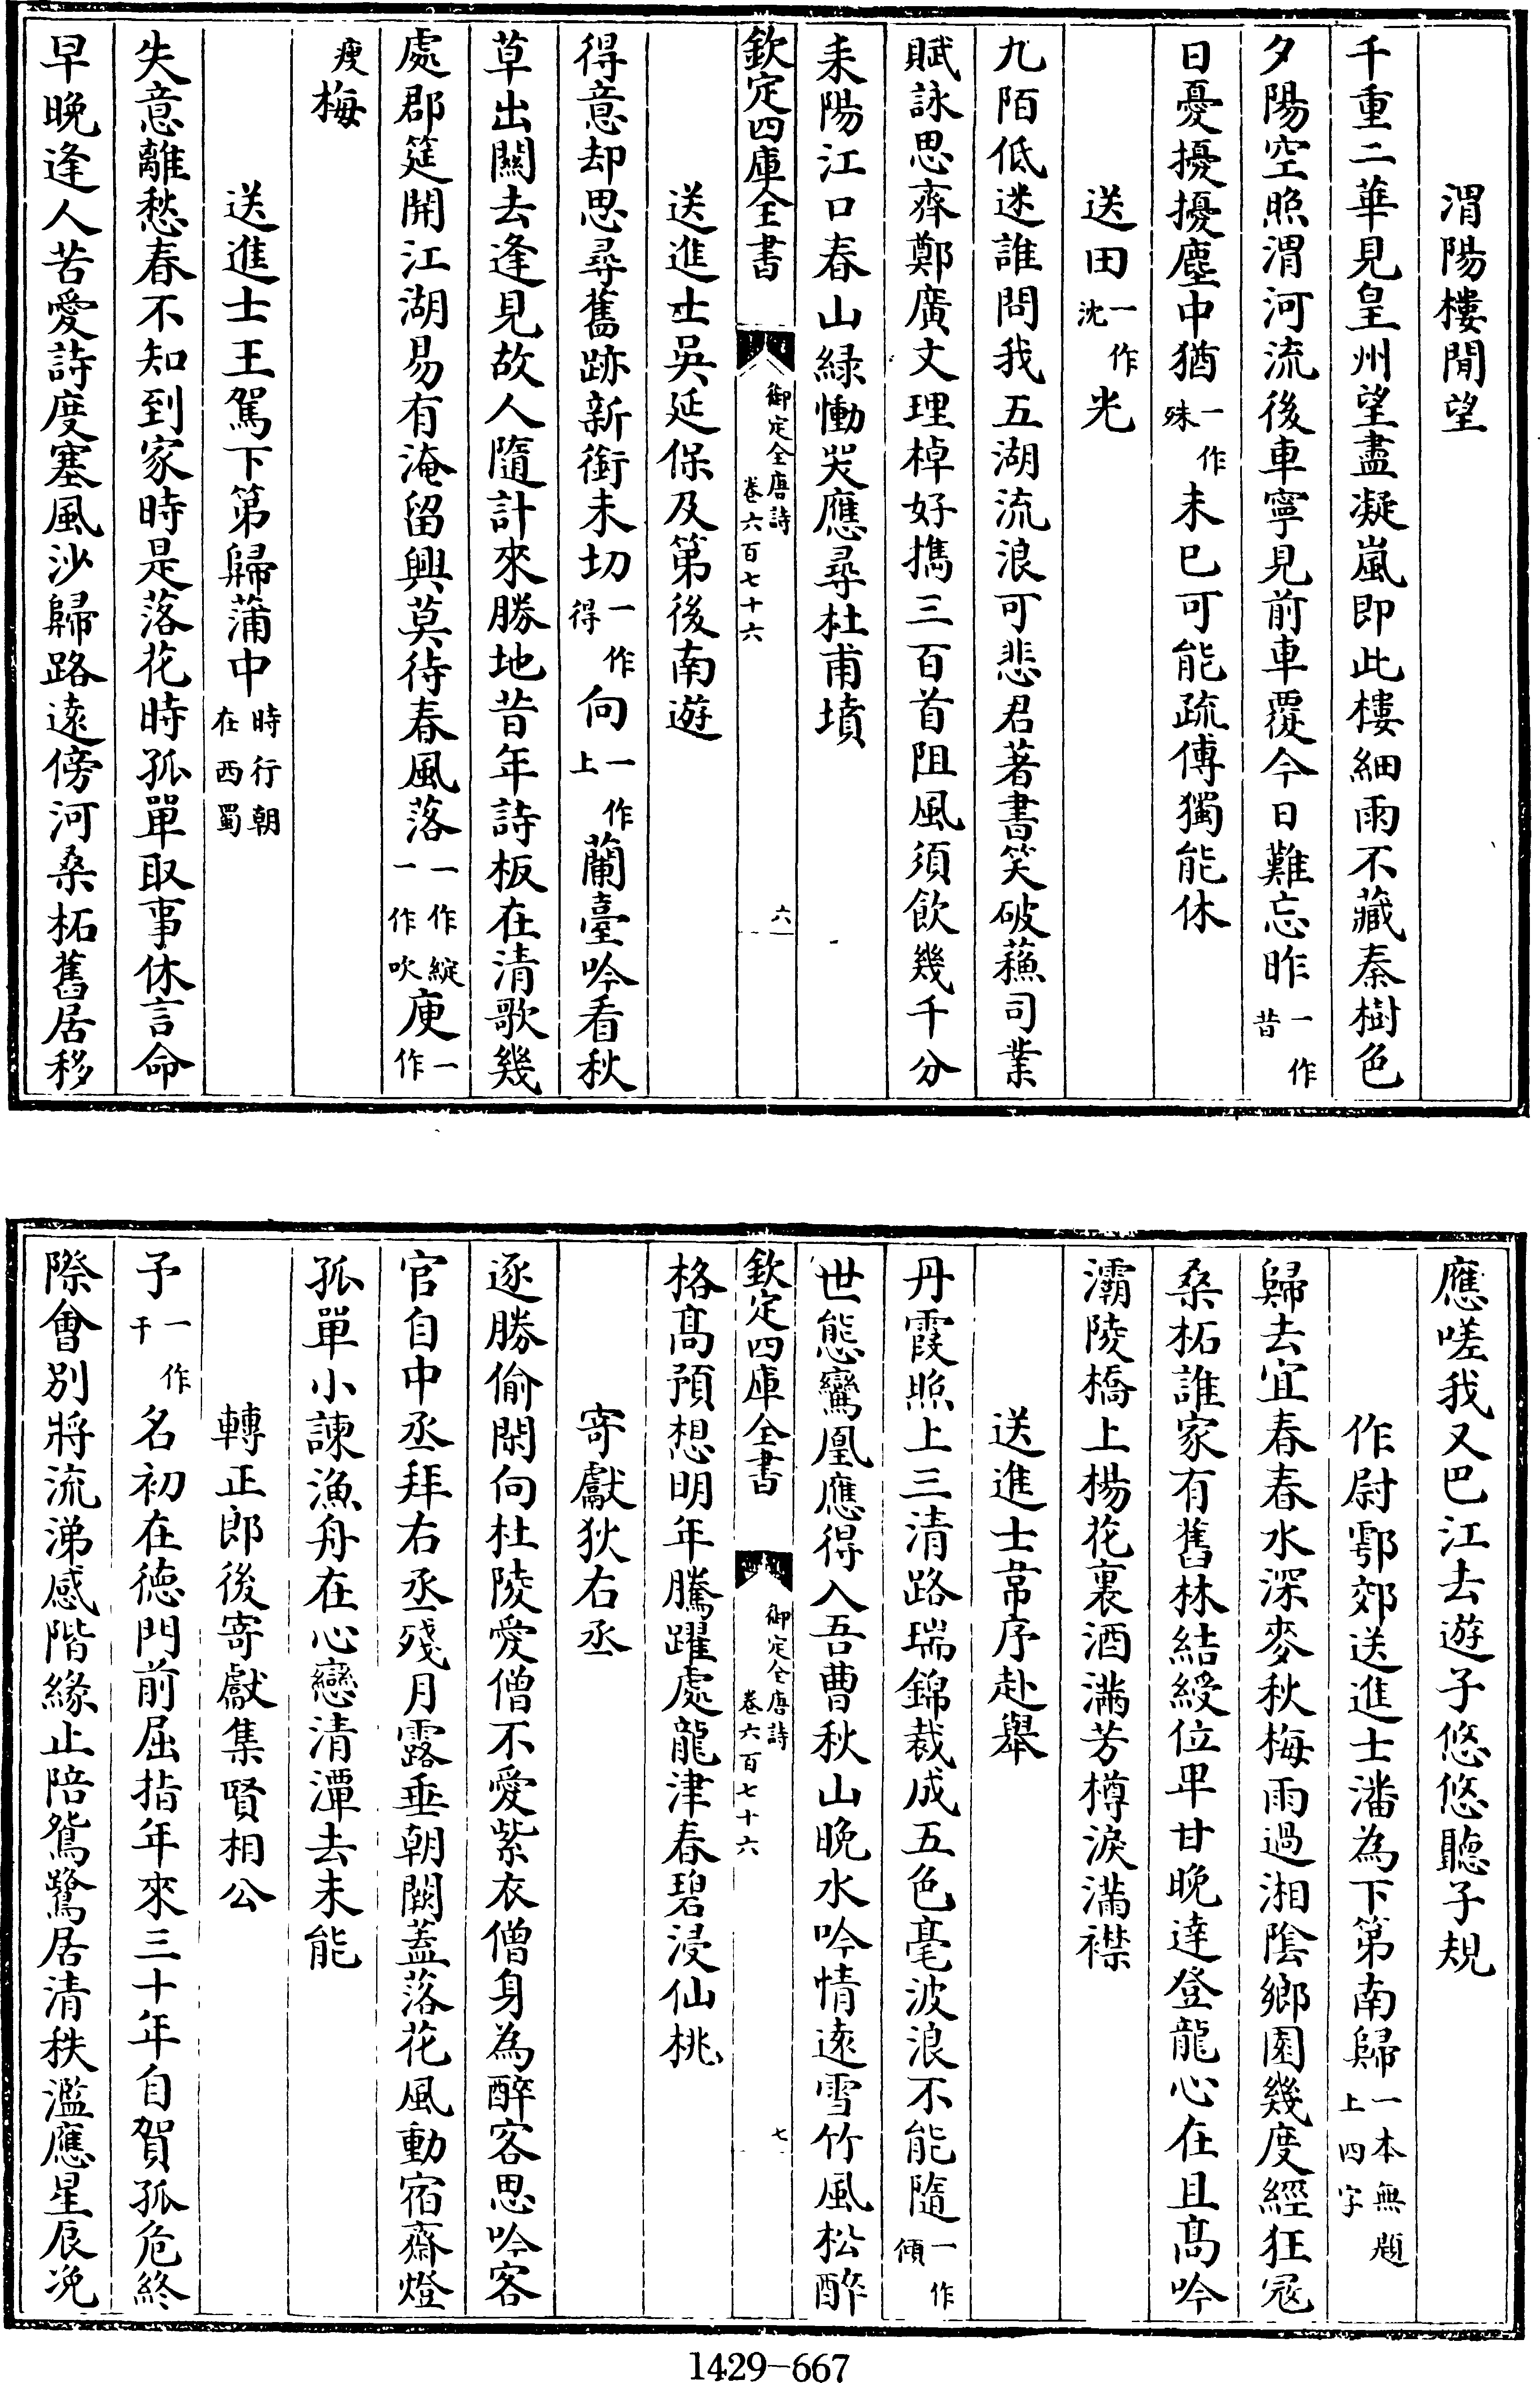 渭陽樓閒望
千重二華見皇州望盡凝嵐即此樓細雨不藏秦樹色
夕陽空照渭河流後車寧見前車覆今日難忘昨一作昔
日憂擾擾塵中猶一作殊未已可能疏傅獨能休
送田一作沈光
九陌低迷誰問我五湖流浪可悲君著書笑破蘓司業
賦詠思齊鄭廣文理棹好擕三百首阻風須飲幾千分
耒陽江口春山緑慟哭應尋杜甫墳
欽定四庫全書 御定全唐詩 卷六百七十六 六
送進士吳延保及第後南遊
得意却思尋舊跡新銜未切一作得向一作上蘭臺吟看秋
草出關去逢見故人隨計來勝地昔年詩板在清歌幾
處郡筵開江湖易有淹留興莫待春風落一作綻一作吹庾一作
瘦梅
送進士王駕下第歸蒲中時行朝在西蜀
失意離愁春不知到家時是落花時孤單取事休言命
早晚逢人苦愛詩度塞風沙歸路遠傍河桑柘舊居移
應嗟我又巴江去遊子悠悠聽子規
作尉鄠郊送進士潘為下第南歸一本無題上四字
歸去宜春春水深麥秋梅雨過湘陰鄉園幾度經狂寇
桑柘誰家有舊林結綬位卑甘晚達登龍心在且髙吟
灞陵橋上楊花裏酒滿芳樽淚滿襟
送進士韋序赴舉
丹霞照上三清路瑞錦裁成五色毫波浪不能隨一作傾
世態鸞凰應得入吾曹秋山晚水吟情遠雪竹風松醉
格髙預想明年騰躍處龍津春碧浸仙桃
欽定四庫全書 御定全唐詩 卷六百七十六 七
寄獻狄右丞
逐勝偷閑向杜陵愛僧不愛紫衣僧身為醉客思吟客
官自中丞拜右丞殘月露垂朝闕葢落花風動宿齋燈
孤單小諫漁舟在心戀清潭去未能
轉正郎後寄獻集賢相公
予一作干名初在徳門前屈指年來三十年自賀孤危終
際會別將流涕感階緣止陪鴛鷺居清秩濫應星辰浼
1429-667